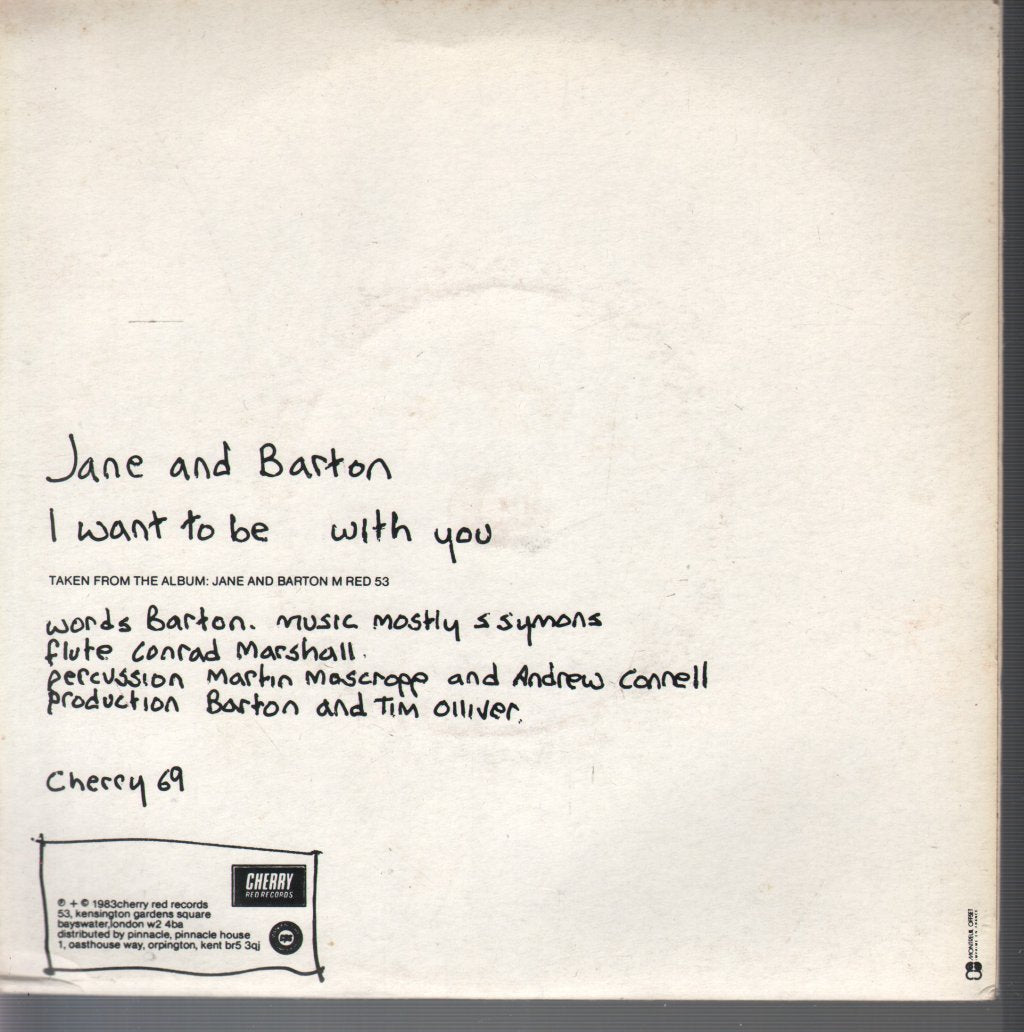 Jane and Barton
I want to be with you
TAKEN FROM THE ALBUM: JANE AND BARTON M RED 53
words Barton. music mostly s symons
flute conrad Marshall.
percussion Martin Moscropp and Andrew Connell
production Barton and Tim Olliver.
Cherry 69
CHERRY
RED RECORDS
℗ + © 1983cherry red records
53, kensington gardens square
bayswater,london w2 4ba
distributed by pinnacle, pinnacle house
1, oasthouse way, orpington, kent br5 3qj
cps
MONTREUIL OFFSET
IMPRIMÉ EN FRANCE